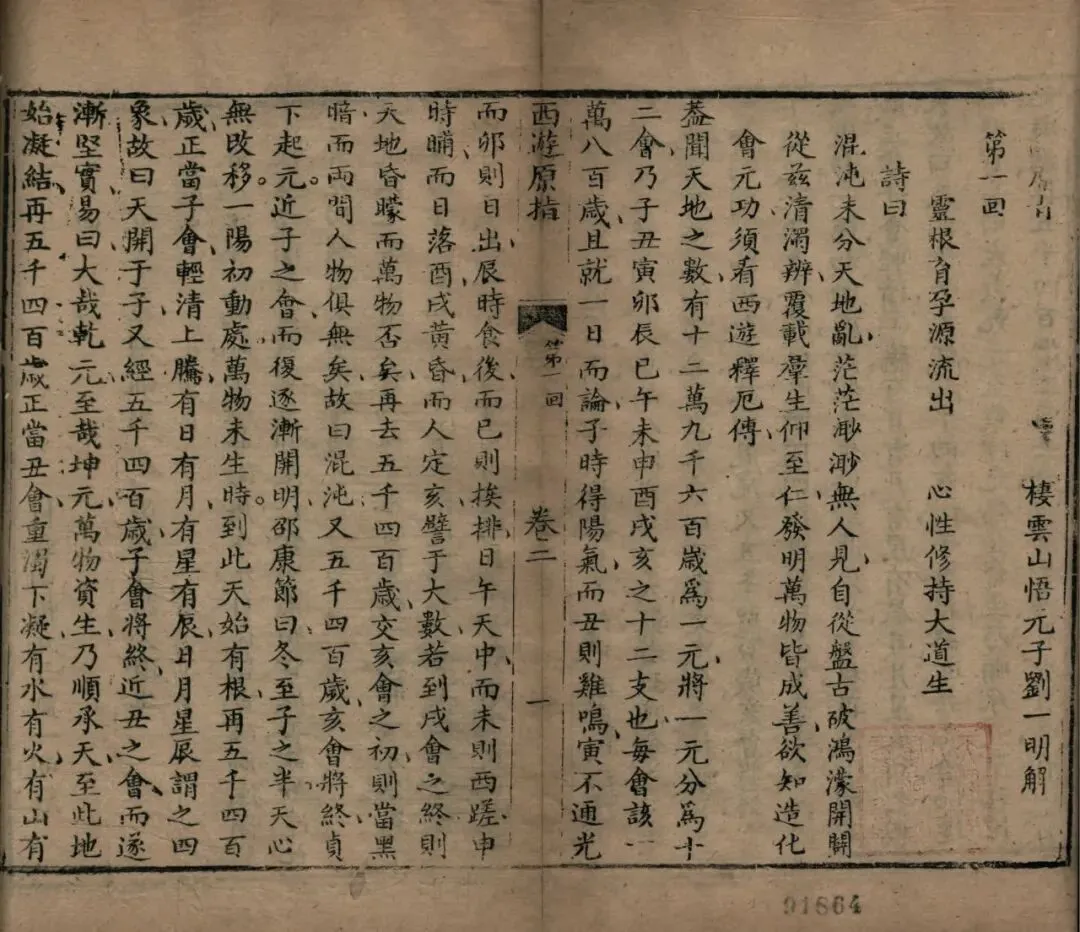 棲雲山悟元子劉一明解
第一回
靈根育孕源流出　心性修持大道生
詩曰
混沌未分天地亂、茫茫渺渺無人見、自從盤古破鴻濛、開闢
從茲清濁辨、覆載羣生仰至仁、發明萬物皆成善、欲知造化
會元功、須看西遊釋厄傳、
蓋聞天地之數、有十二萬九千六百歲爲一元、將一元分爲十
二會、乃子丑寅卯辰巳午未申酉戌亥之十二支也、每會該一
萬八百歲、且就一日而論、子時得陽氣、而丑則雞鳴、寅不通光、
西遊原指　第一回　卷二　一
而卯則日出、辰時食後、而巳則挨排、日午天中、而未則西蹉、申
時晡、而日落酉、戌黃昏、而人定亥、譬于大數、若到戌會之終、則
天地昏曚而萬物否矣、再去五千四百歲、交亥會之初、則當黑
暗、而兩間人物俱無矣、故曰混沌、又五千四百歲、亥會將終、貞
下起元。近子之會、而復逐漸開明、邵康節曰冬至子之半、天心
無改移、一陽初動處、萬物未生時。到此天始有根、再五千四百
歲、正當子會、輕清上騰、有日有月有星有辰、日月星辰、謂之四
象、故曰天開于子、又經五千四百歲、子會將終、近丑之會、而遂
漸堅實、易曰大哉乾元、至哉坤元、萬物資生、乃順承天、至此地
始凝結、再五千四百歲、正當丑會、重濁下凝、有水有火有山有
91864